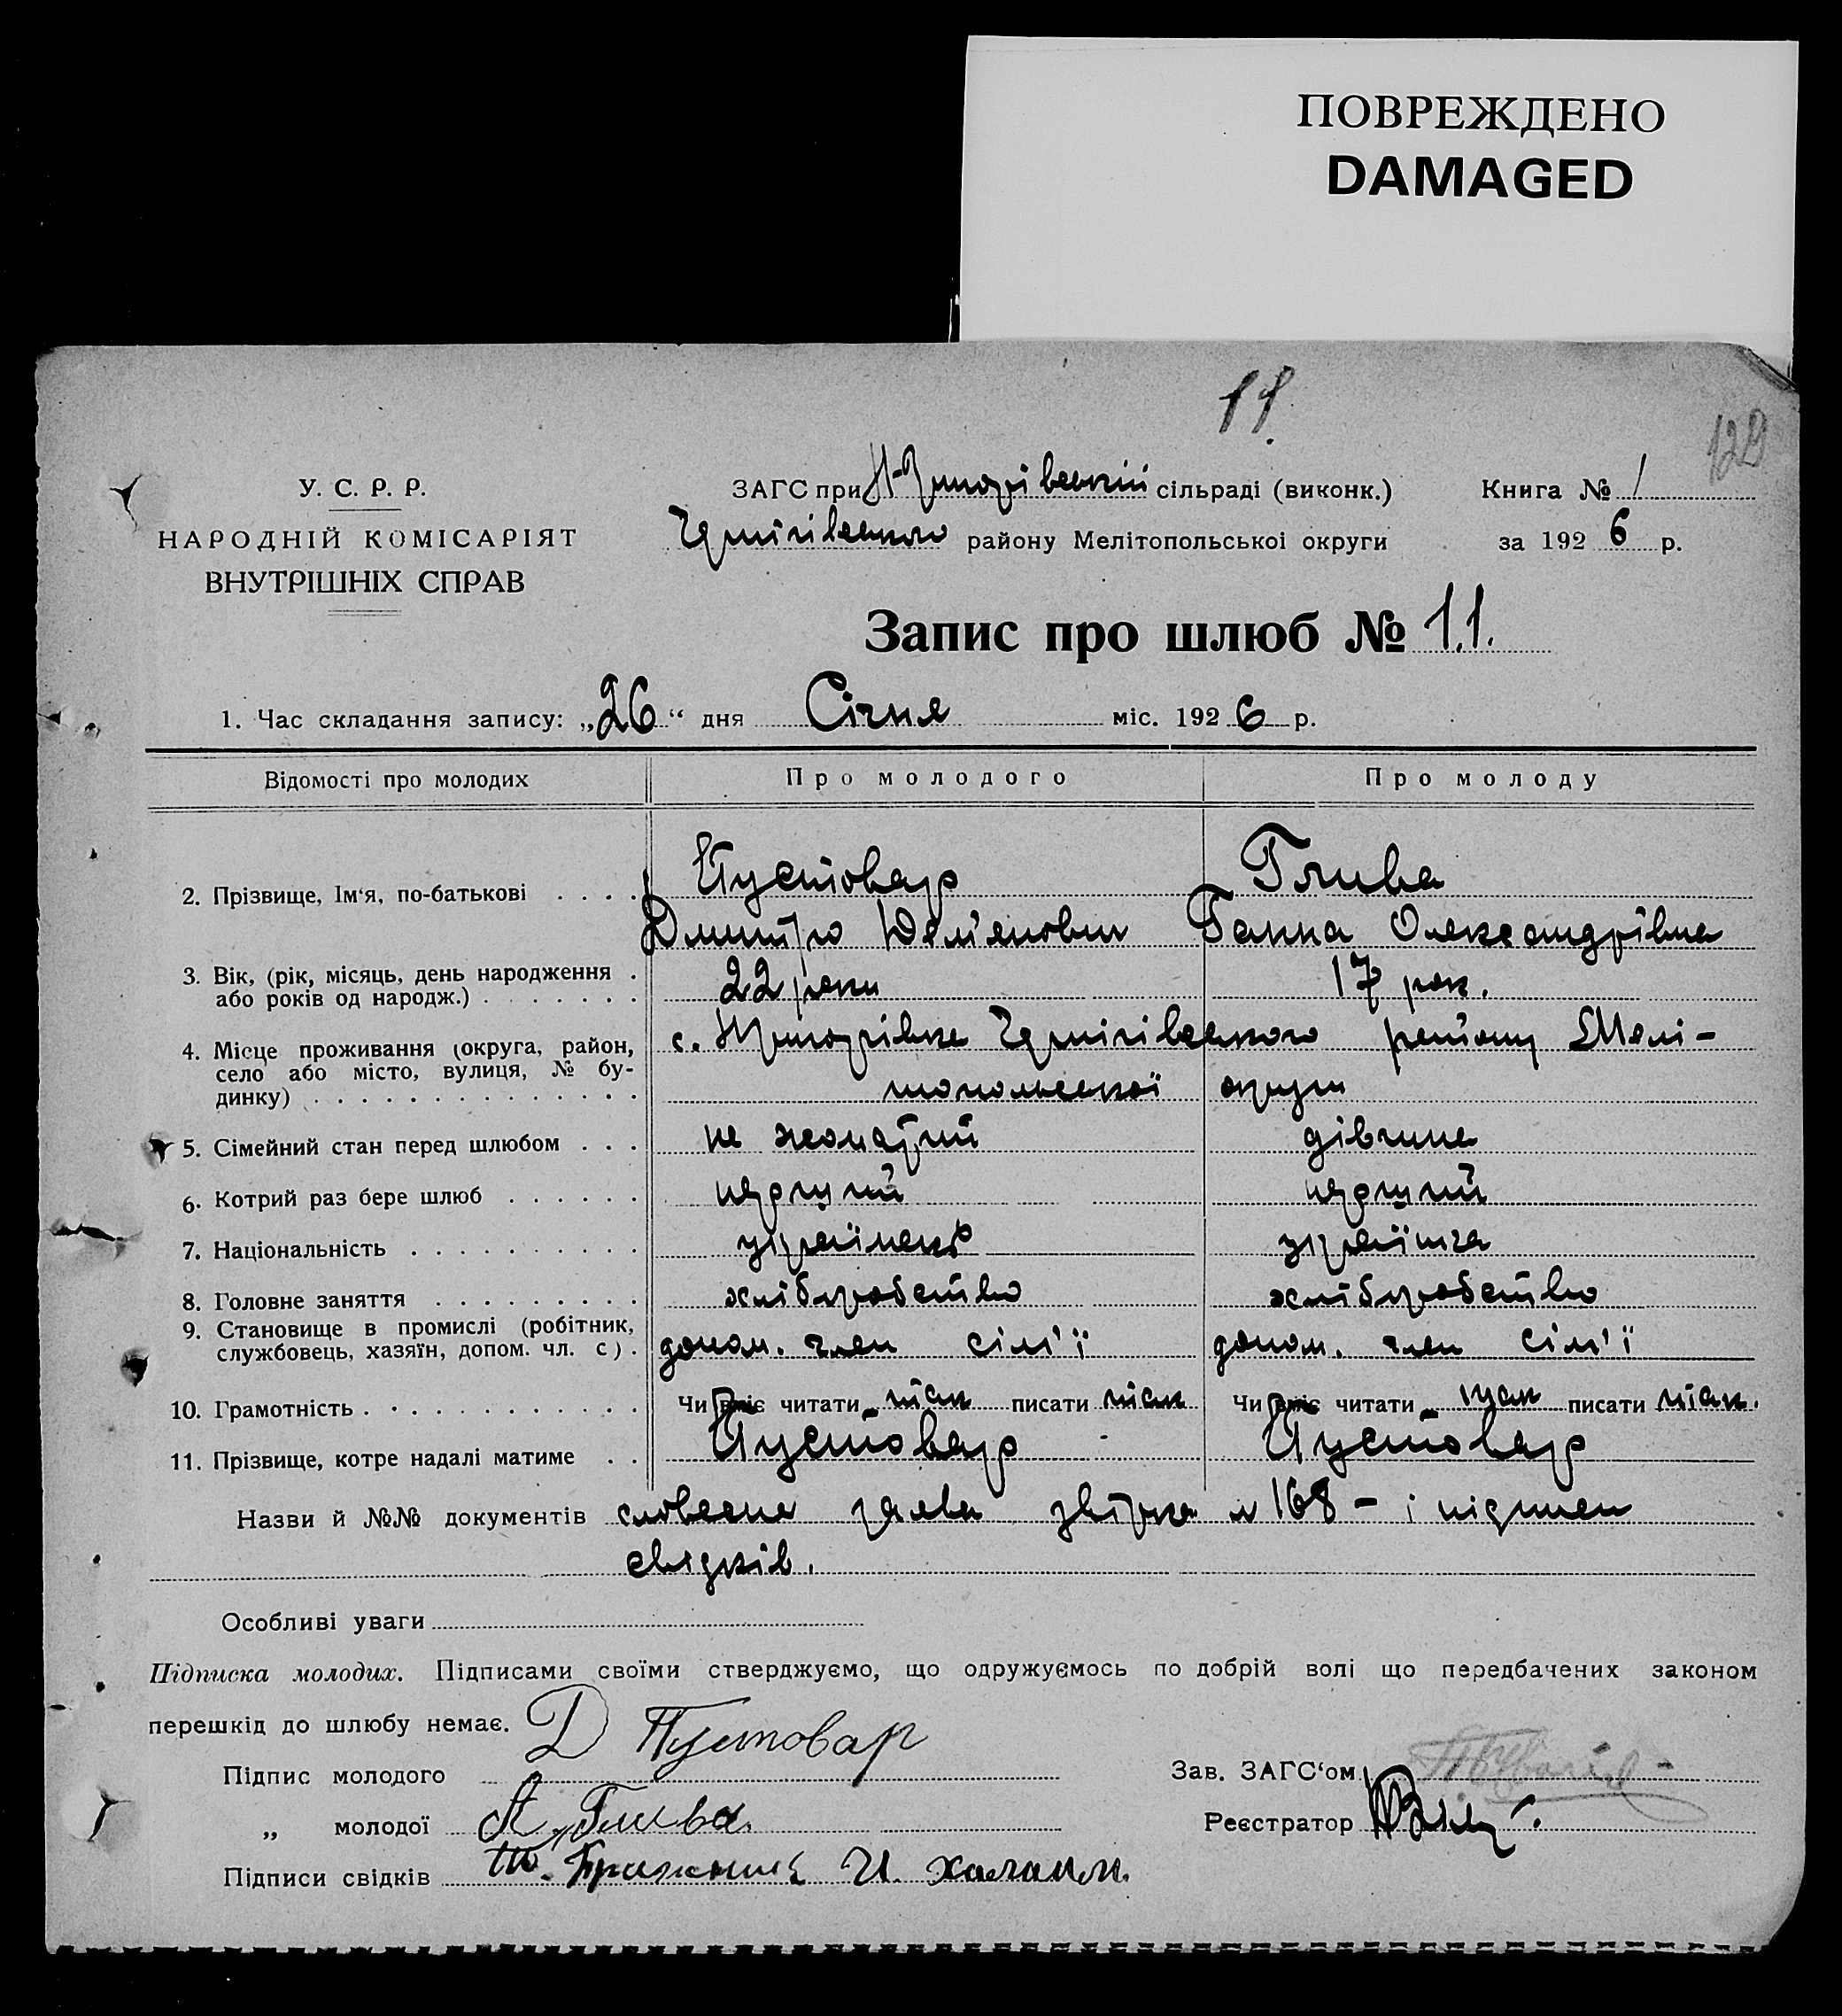 ПОВРЕЖДЕНО
DAMAGED
11.
129
У. С. Р. Р.
НАРОДНІЙ КОМІСАРІЯТ
ВНУТРІШНІХ СПРАВ
ЗАГС при сільраді (виконк.)
Чернігівського району Мелітопольської округи
Книга № 1
за 1926 р.
Запис про шлюб № 11.
1. Час складання запису: „26“ дня Січня міс. 1926 р.
Відомості про молодих Про молодого Про молоду
2. Прізвище, Ім'я, по-батькові . . . . Пустовар Глива
Дмитро Дем'янович Ганна Олександрівна
3. Вік, (рік, місяць, день народження . або років од народж.) . . . . . . . 22 роки 17 рок.
4. Місце проживання (округа, район, село або місто, вулиця, № будинку) . . . . . . . . . . . . . . с. Чернігівського району Мелі-
топольської округи
5. Сімейний стан перед шлюбом . . . не жонатий дівчина
6. Котрий раз бере шлюб . . . . . . перший перший
7. Національність . . . . . . . . . . українець українка
8. Головне заняття . . . . . . . . . хліборобство хліборобство
9. Становище в промислі (робітник, службовець, хазяїн, допом. чл. с) . допом. член сім'ї допом. член сім'ї
10. Грамотність . . . . . . . . . . . . Чи вміє читати так писати так Чи вміє читати так писати так.
11. Прізвище, котре надалі матиме . . Пустовар Пустовар
Назви й №№ документів словесна заява звірка № 168 – і підписи
свідків.
Особливі уваги
Підписка молодих. Підписами своїми стверджуємо, що одружуємось по добрій волі що передбачених законом
перешкід до шлюбу немає.
Підпис молодого Д Пустовар
„ молодої А. Глива.
Підписи свідків И.
Зав. ЗАГС'ом
Реєстратор